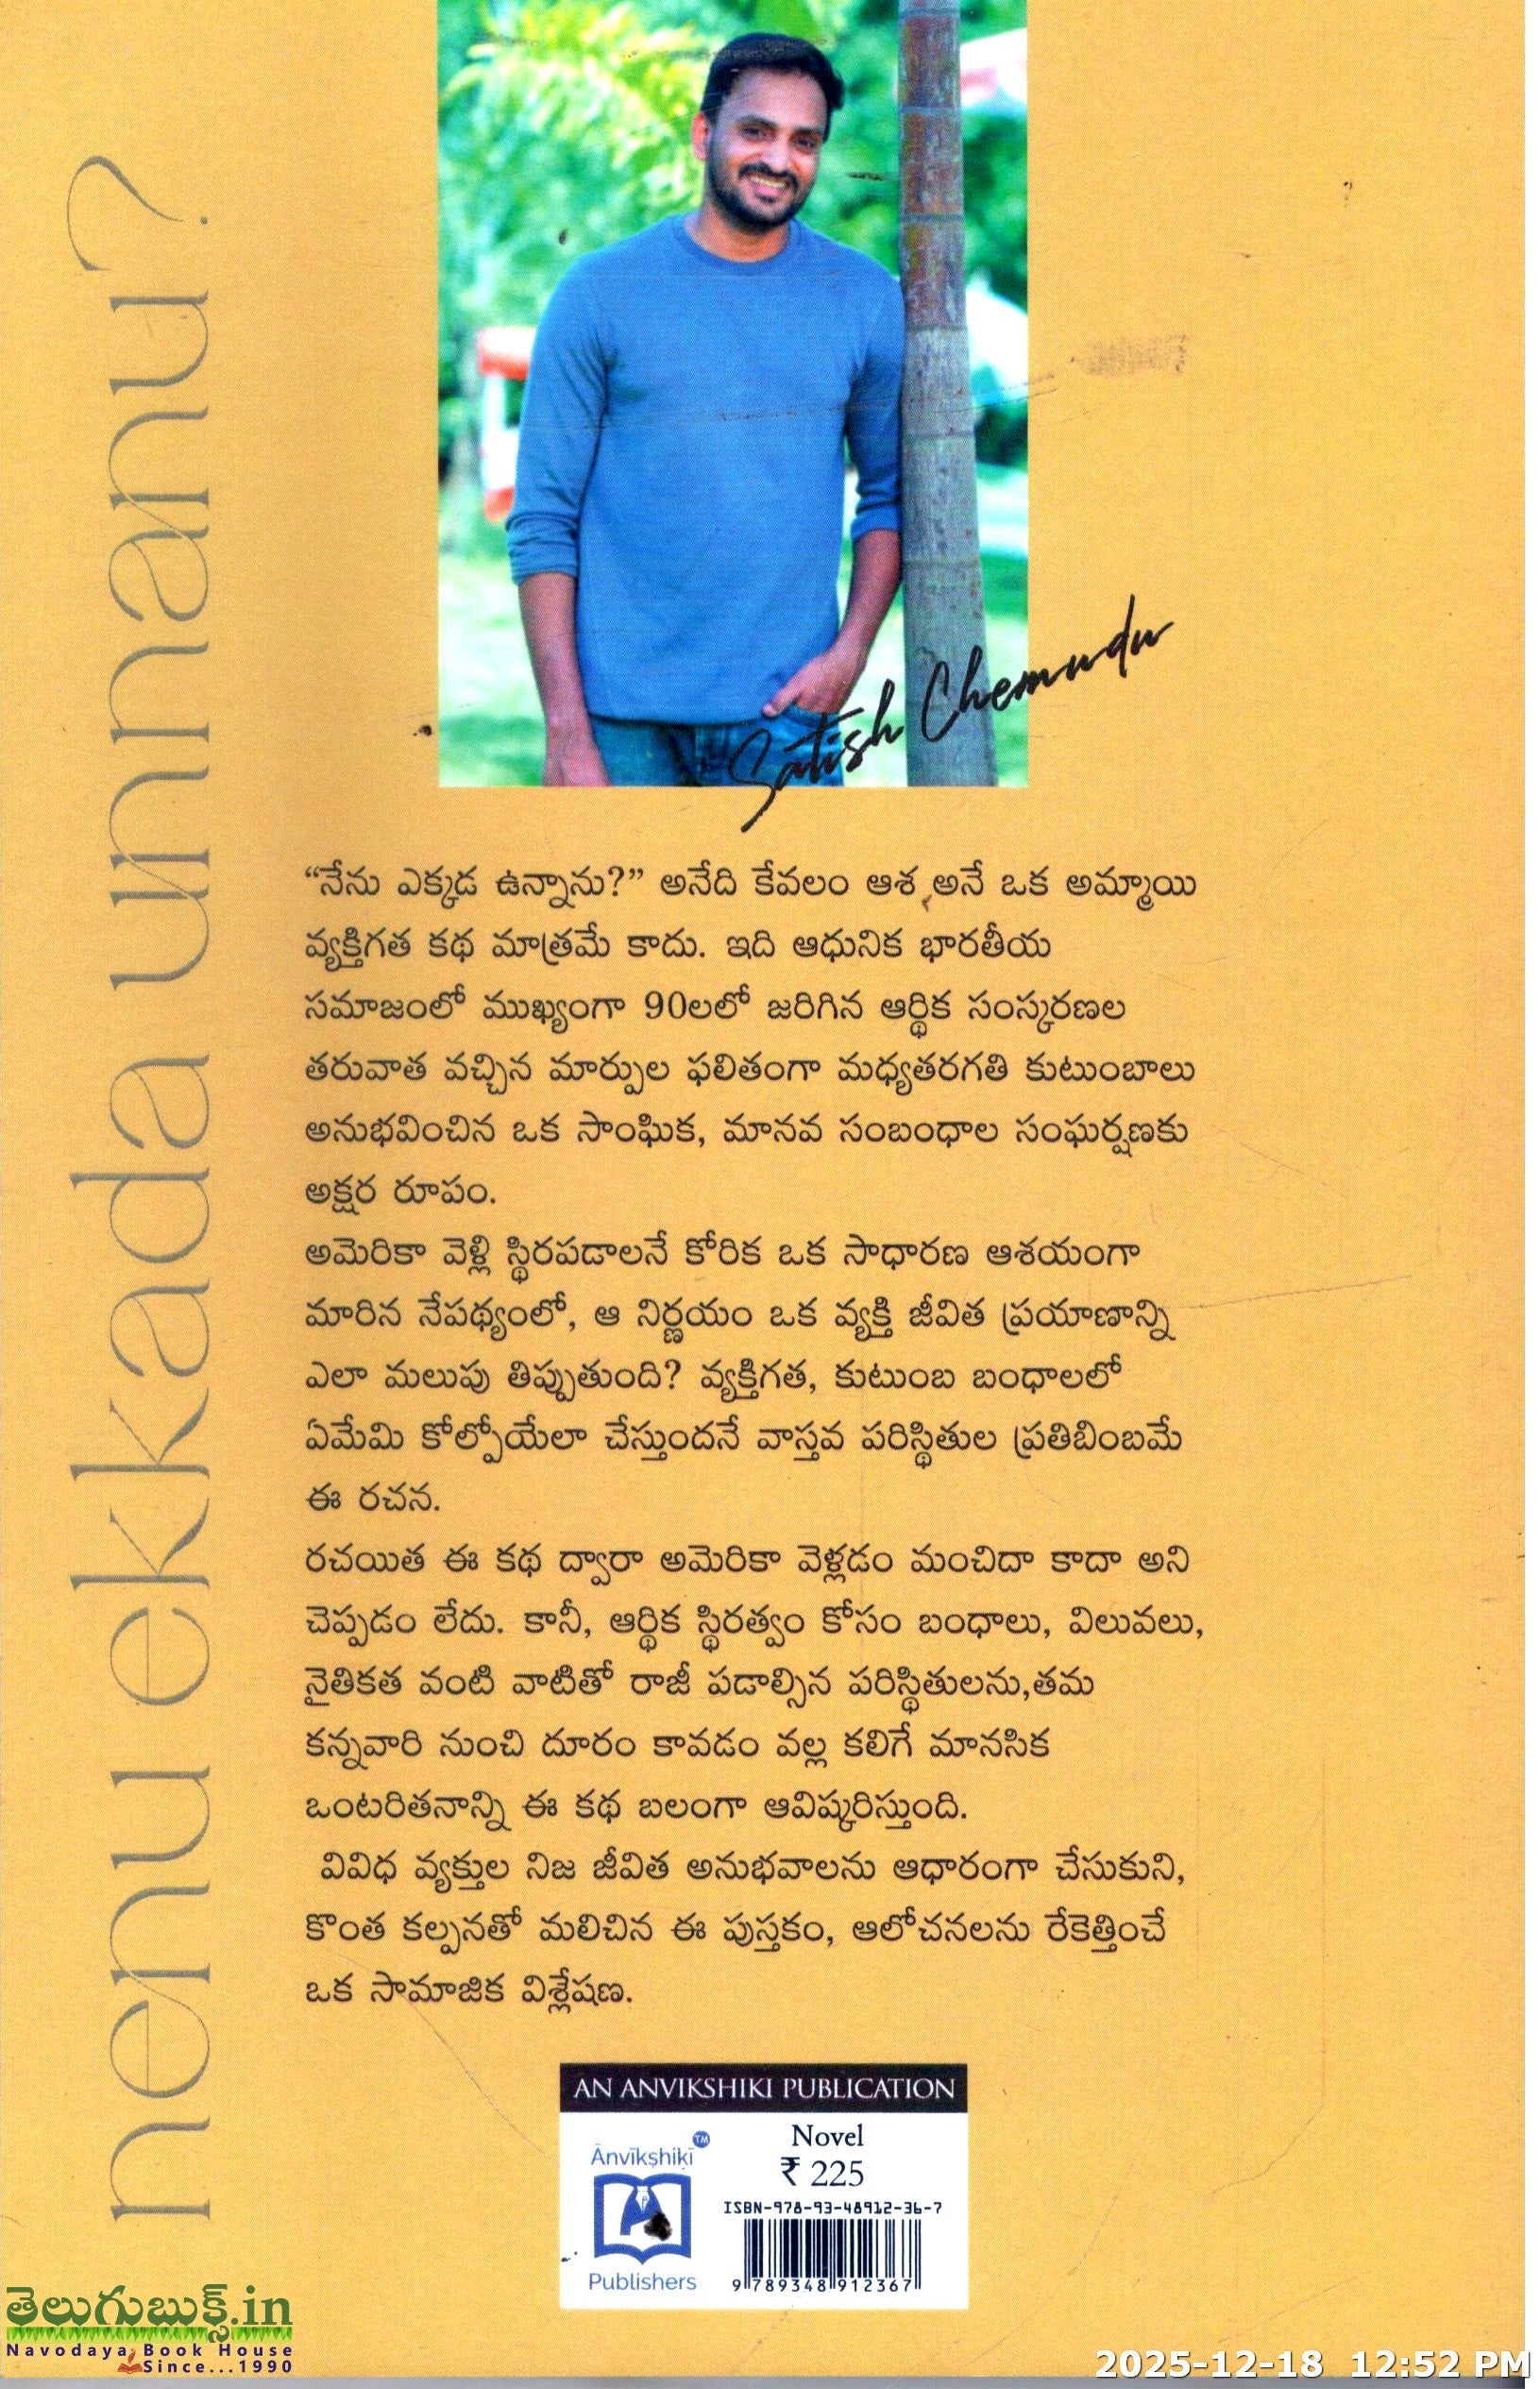 nenu ekkada unnanu?
Satish Chemudu
“నేను ఎక్కడ ఉన్నాను?” అనేది కేవలం ఆశ అనే ఒక అమ్మాయి
వ్యక్తిగత కథ మాత్రమే కాదు. ఇది ఆధునిక భారతీయ
సమాజంలో ముఖ్యంగా 90లలో జరిగిన ఆర్థిక సంస్కరణల
తరువాత వచ్చిన మార్పుల ఫలితంగా మధ్యతరగతి కుటుంబాలు
అనుభవించిన ఒక సాంఘిక, మానవ సంబంధాల సంఘర్షణకు
అక్షర రూపం.
అమెరికా వెళ్లి స్థిరపడాలనే కోరిక ఒక సాధారణ ఆశయంగా
మారిన నేపథ్యంలో, ఆ నిర్ణయం ఒక వ్యక్తి జీవిత ప్రయాణాన్ని
ఎలా మలుపు తిప్పుతుంది? వ్యక్తిగత, కుటుంబ బంధాలలో
ఏమేమి కోల్పోయేలా చేస్తుందనే వాస్తవ పరిస్థితుల ప్రతిబింబమే
ఈ రచన.
రచయిత ఈ కథ ద్వారా అమెరికా వెళ్లడం మంచిదా కాదా అని
చెప్పడం లేదు. కానీ, ఆర్థిక స్థిరత్వం కోసం బంధాలు, విలువలు,
నైతికత వంటి వాటితో రాజీ పడాల్సిన పరిస్థితులను,తమ
కన్నవారి నుంచి దూరం కావడం వల్ల కలిగే మానసిక
ఒంటరితనాన్ని ఈ కథ బలంగా ఆవిష్కరిస్తుంది.
వివిధ వ్యక్తుల నిజ జీవిత అనుభవాలను ఆధారంగా చేసుకుని,
కొంత కల్పనతో మలిచిన ఈ పుస్తకం, ఆలోచనలను రేకెత్తించే
ఒక సామాజిక విశ్లేషణ.
AN ANVIKSHIKI PUBLICATION
Ānvīkṣhikī TM
Publishers
Novel
₹ 225
ISBN-978-93-48912-36-7
9 789348 912367
తెలుగుబుక్స్.in
Navodaya Book House
Since...1990
2025-12-18 12:52 PM